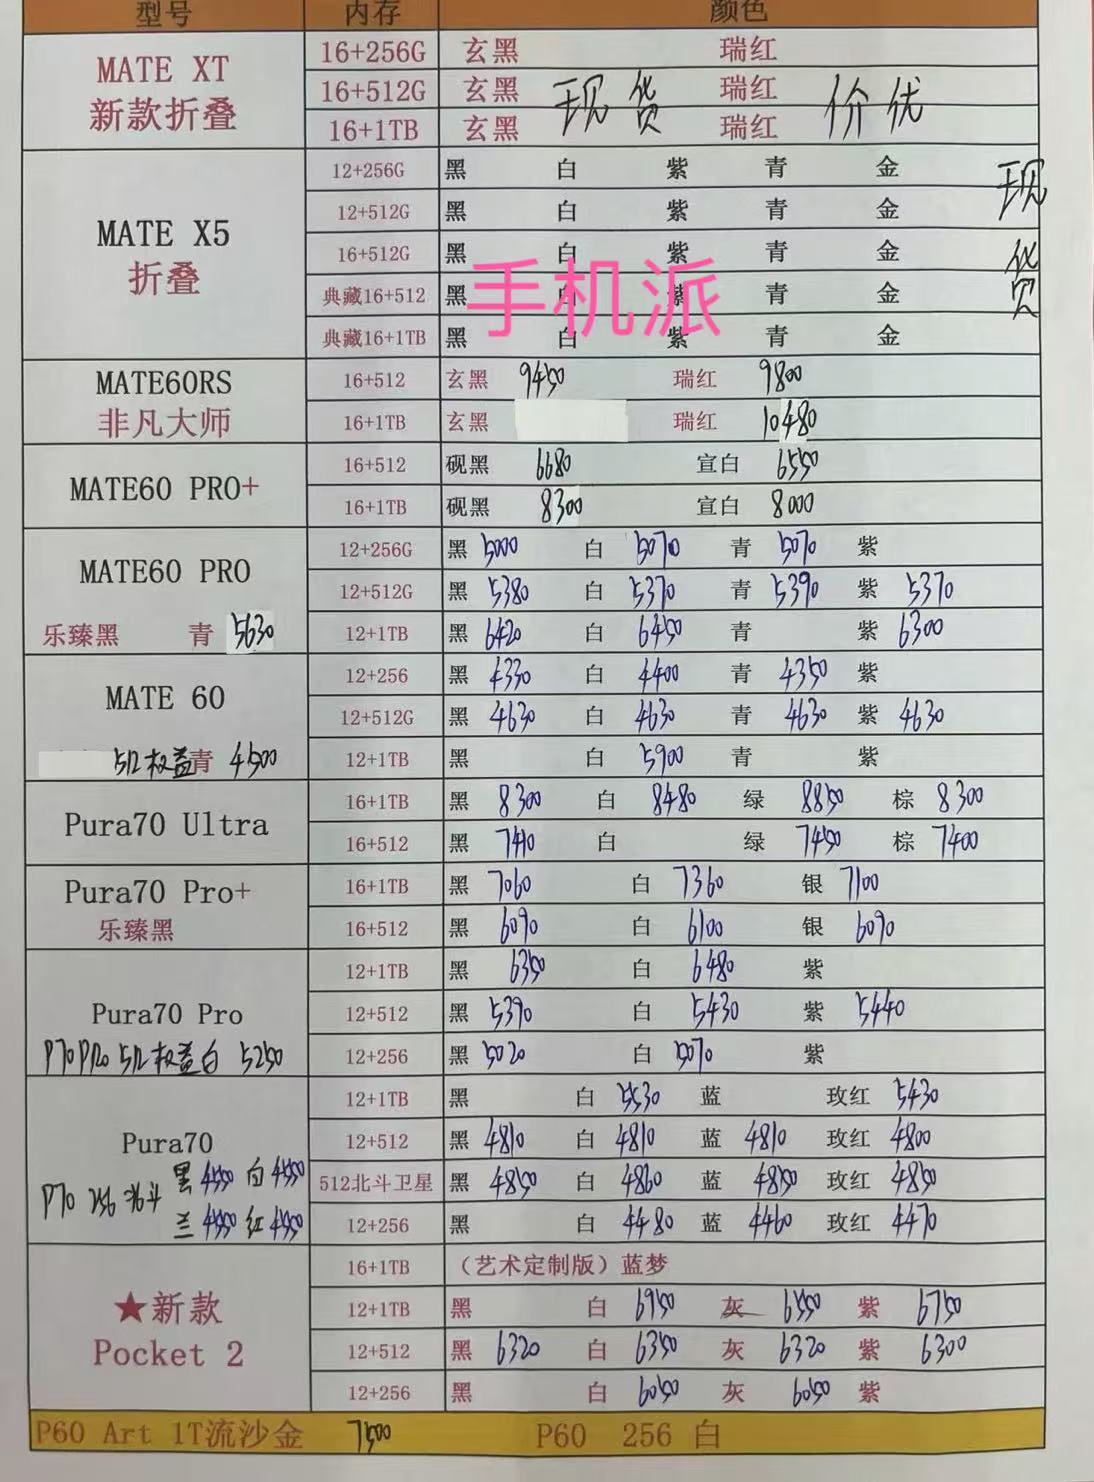 型号 内存 颜色
MATE XT 新款折叠
16+256G 玄黑 瑞红
16+512G 玄黑 现货 瑞红 价优
16+1TB 玄黑 瑞红
MATE X5 折叠 现货
12+256G 黑 白 紫 青 金
12+512G 黑 白 紫 青 金
16+512G 黑 白 紫 青 金
手机派
典藏16+512 黑 白 紫 青 金
典藏16+1TB 黑 白 紫 青 金
MATE60RS 非凡大师
16+512 玄黑 9450 瑞红 9800
16+1TB 玄黑 瑞红 10480
MATE60 PRO+
16+512 砚黑 6680 宣白 6550
16+1TB 砚黑 8300 宣白 8000
MATE60 PRO
12+256G 黑 5000 白 5070 青 5070 紫
12+512G 黑 5380 白 5370 青 5390 紫 5370
乐臻黑 青 5630
12+1TB 黑 6420 白 6450 青 紫 6300
MATE 60
12+256 黑 4330 白 4400 青 4350 紫
12+512G 黑 4630 白 4630 青 4630 紫 4630
512权益青 4500
12+1TB 黑 白 5900 青 紫
Pura70 Ultra
16+1TB 黑 8300 白 8480 绿 8850 棕 8300
16+512 黑 7410 白 绿 7450 棕 7400
Pura70 Pro+
乐臻黑
16+1TB 黑 7060 白 7360 银 7100
16+512 黑 6090 白 6100 银 6090
Pura70 Pro
12+1TB 黑 6350 白 6480 紫
12+512 黑 5390 白 5430 紫 5440
P70Pro 512权益白 5250
12+256 黑 5020 白 5070 紫
Pura70
12+1TB 黑 白 5530 蓝 玫红 5430
12+512 黑 4810 白 4810 蓝 4810 玫红 4800
P70 256 北斗 黑 4550 白 4550
兰 4550 红 4550
512北斗卫星 黑 4850 白 4860 蓝 4850 玫红 4850
12+256 黑 白 4480 蓝 4460 玫红 4470
★新款
Pocket 2
16+1TB （艺术定制版）蓝梦
12+1TB 黑 白 6950 灰 6550 紫 6750
12+512 黑 6320 白 6350 灰 6320 紫 6300
12+256 黑 白 6050 灰 6050 紫
P60 Art 1T流沙金 7500 P60 256 白